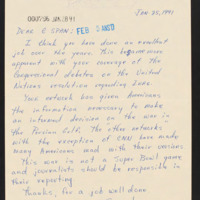 JAN. 25, 1991
JAN 28 91
FEB
DEAR C SPAN:
I think you have done an excellent
job over the years. This became more
apparent with your coverage of the
Congressional debates on the United
Nations resolution regarding Iraq.
Your network has given Americans
the information necessary to make
an informed decision on the war in
the Persian Gulf. The other networks
with the exception of CNN have made
many Americans mad with their versions.
This war is not a Super Bowl game
and journalists should be responsible in
their reporting
Thanks, for a job well done